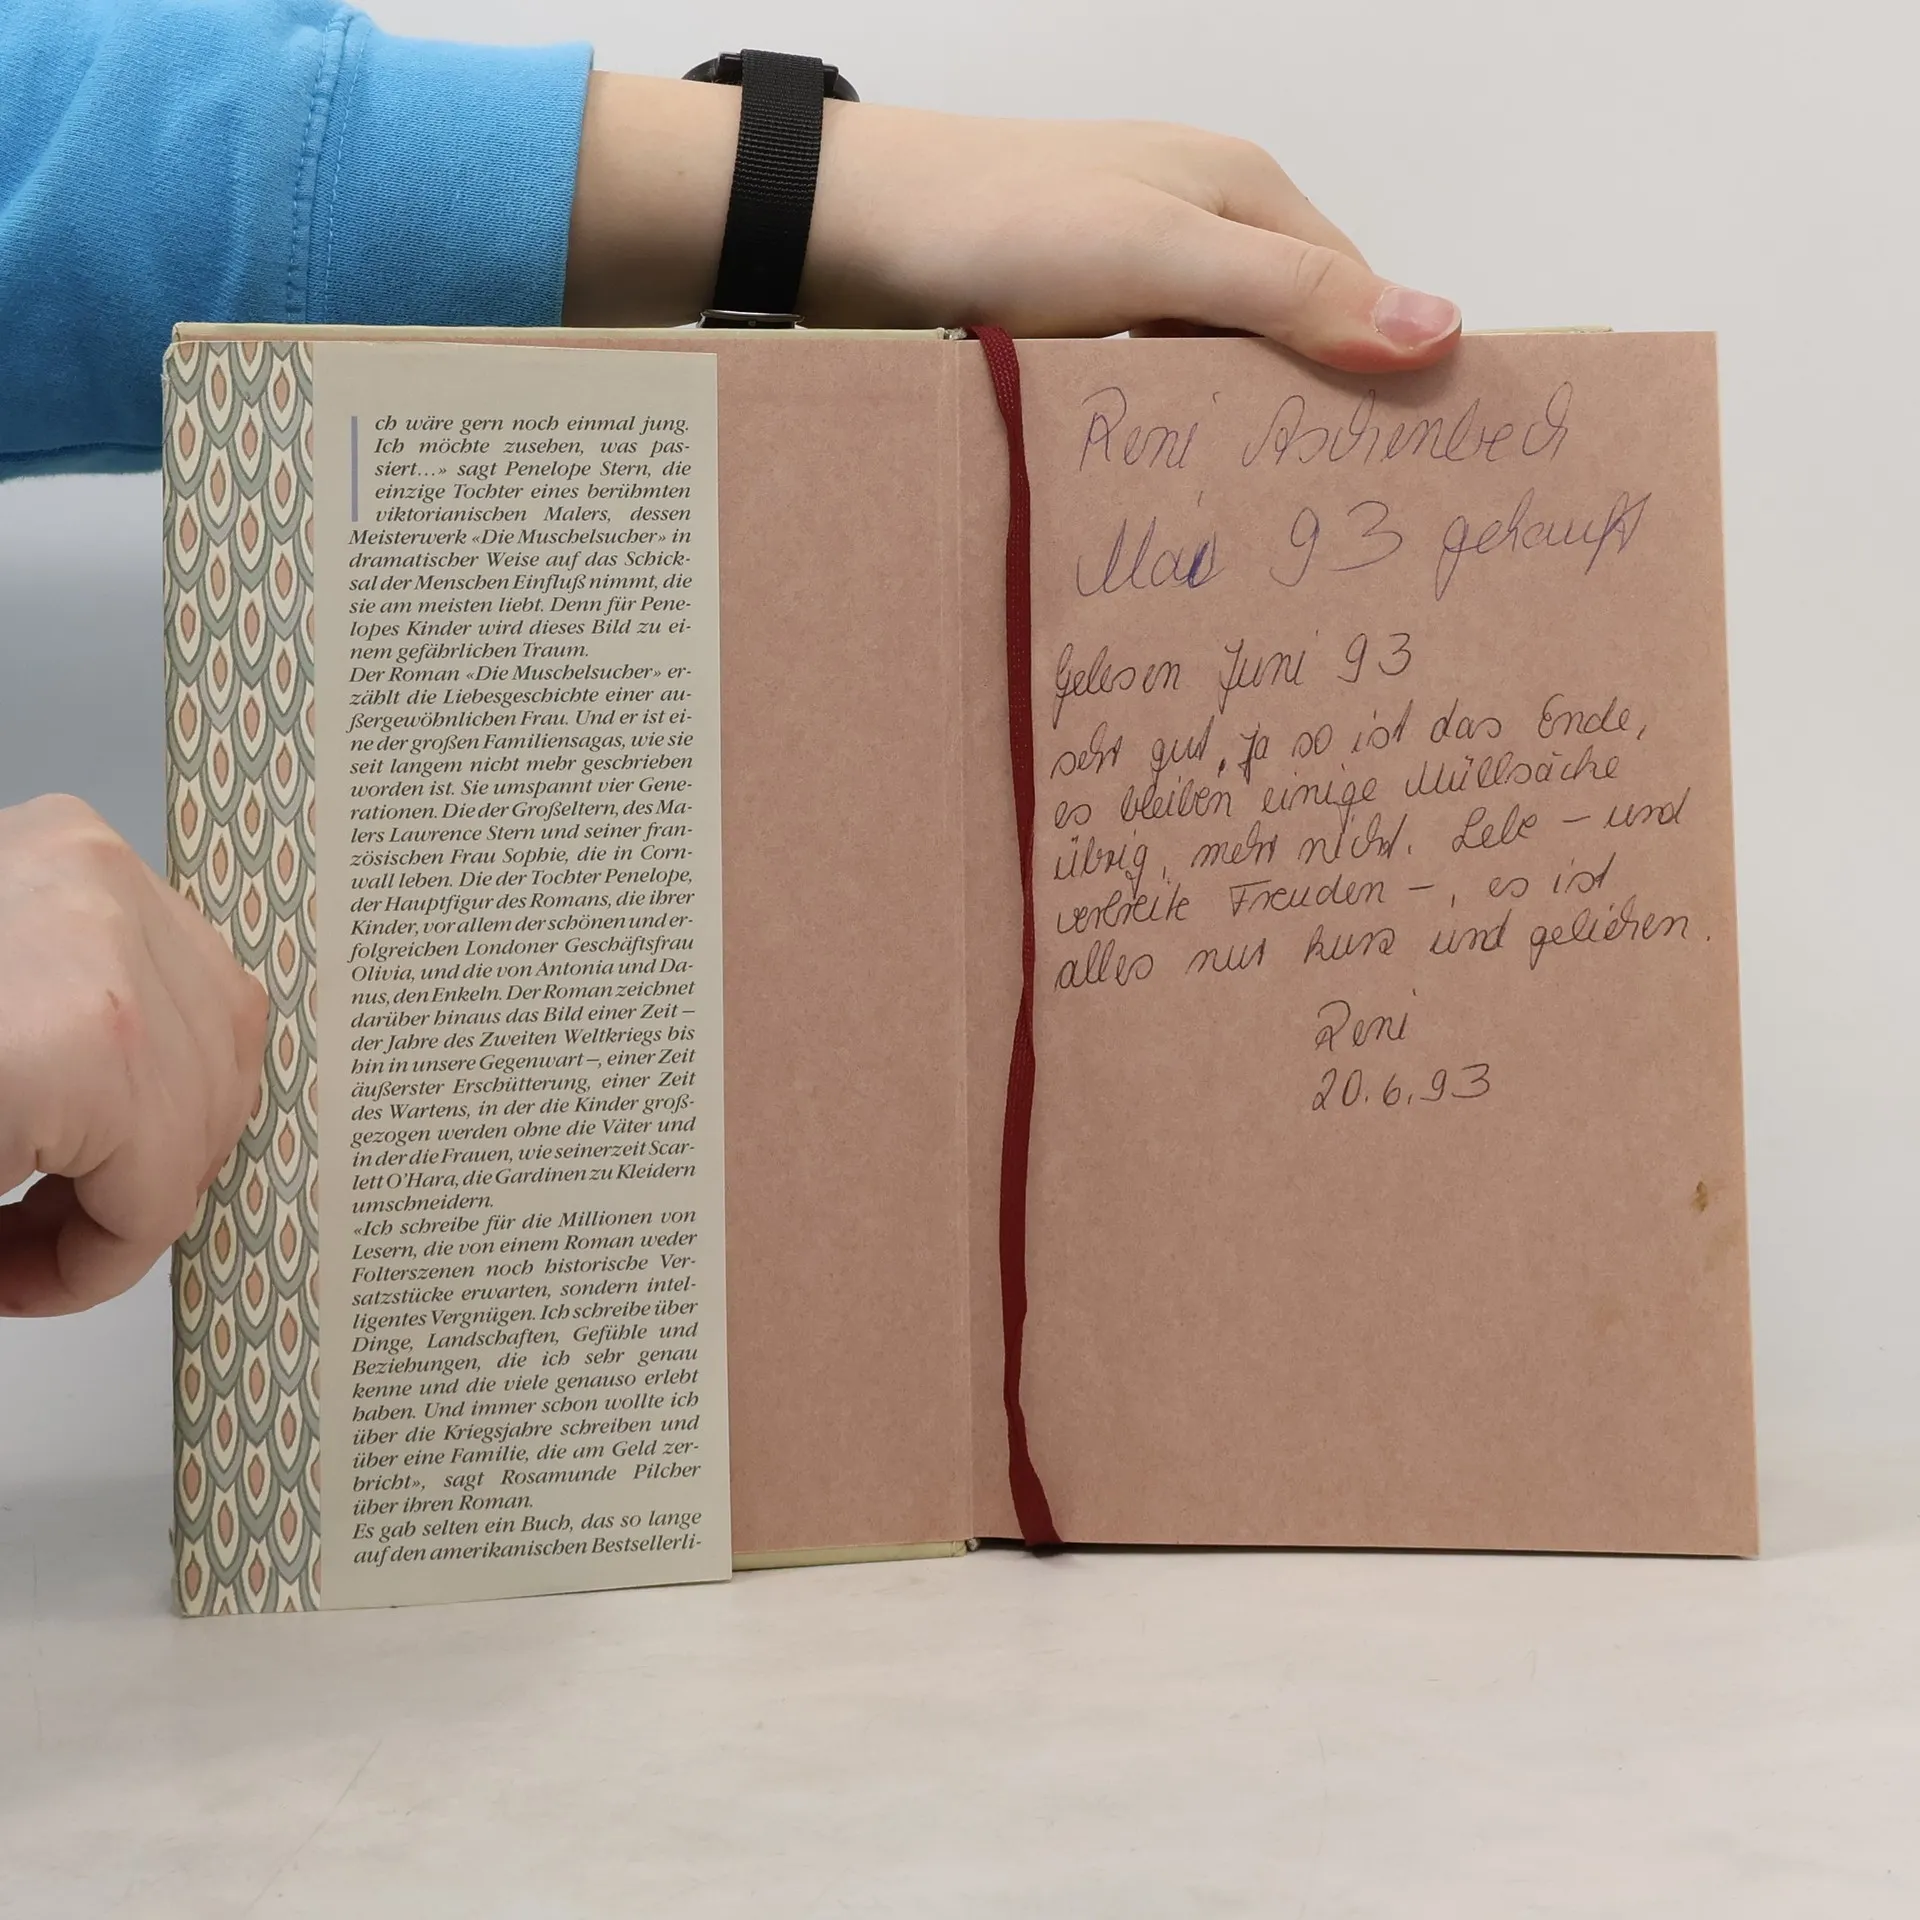 ch wäre gern noch einmal jung.
Ich möchte zusehen, was pas-
siert...» sagt Penelope Stern, die
einzige Tochter eines berühmten
viktorianischen Malers, dessen
Meisterwerk «Die Muschelsucher» in
dramatischer Weise auf das Schick-
sal der Menschen Einfluß nimmt, die
sie am meisten liebt. Denn für Pene-
lopes Kinder wird dieses Bild zu ei-
nem gefährlichen Traum.
Der Roman «Die Muschelsucher» er-
zählt die Liebesgeschichte einer au-
ßergewöhnlichen Frau. Und er ist ei-
ne der großen Familiensagas, wie sie
seit langem nicht mehr geschrieben
worden ist. Sie umspannt vier Gene-
rationen. Die der Großeltern, des Ma-
lers Lawrence Stern und seiner fran-
zösischen Frau Sophie, die in Corn-
wall leben. Die der Tochter Penelope,
der Hauptfigur des Romans, die ihrer
Kinder, vor allem der schönen und er-
folgreichen Londoner Geschäftsfrau
Olivia, und die von Antonia und Da-
nus, den Enkeln. Der Roman zeichnet
darüber hinaus das Bild einer Zeit –
der Jahre des Zweiten Weltkriegs bis
hin in unsere Gegenwart –, einer Zeit
äußerster Erschütterung, einer Zeit
des Wartens, in der die Kinder groß-
gezogen werden ohne die Väter und
in der die Frauen, wie seinerzeit Scar-
lett O'Hara, die Gardinen zu Kleidern
umschneidern.
«Ich schreibe für die Millionen von
Lesern, die von einem Roman weder
Folterszenen noch historische Ver-
satzstücke erwarten, sondern intel-
ligentes Vergnügen. Ich schreibe über
Dinge, Landschaften, Gefühle und
Beziehungen, die ich sehr genau
kenne und die viele genauso erlebt
haben. Und immer schon wollte ich
über die Kriegsjahre schreiben und
über eine Familie, die am Geld zer-
bricht», sagt Rosamunde Pilcher
über ihren Roman.
Es gab selten ein Buch, das so lange
auf den amerikanischen Bestsellerli-
Reni Aschenbeck
Mai 93 gekauft
Gelesen Juni 93
sehr gut, ja so ist das Ende,
es bleiben einige Müllsäcke
übrig, mehr nicht. Lebe – und
verbreite Freuden –, es ist
alles nur kurz und geliehen.
Reni
20.6.93